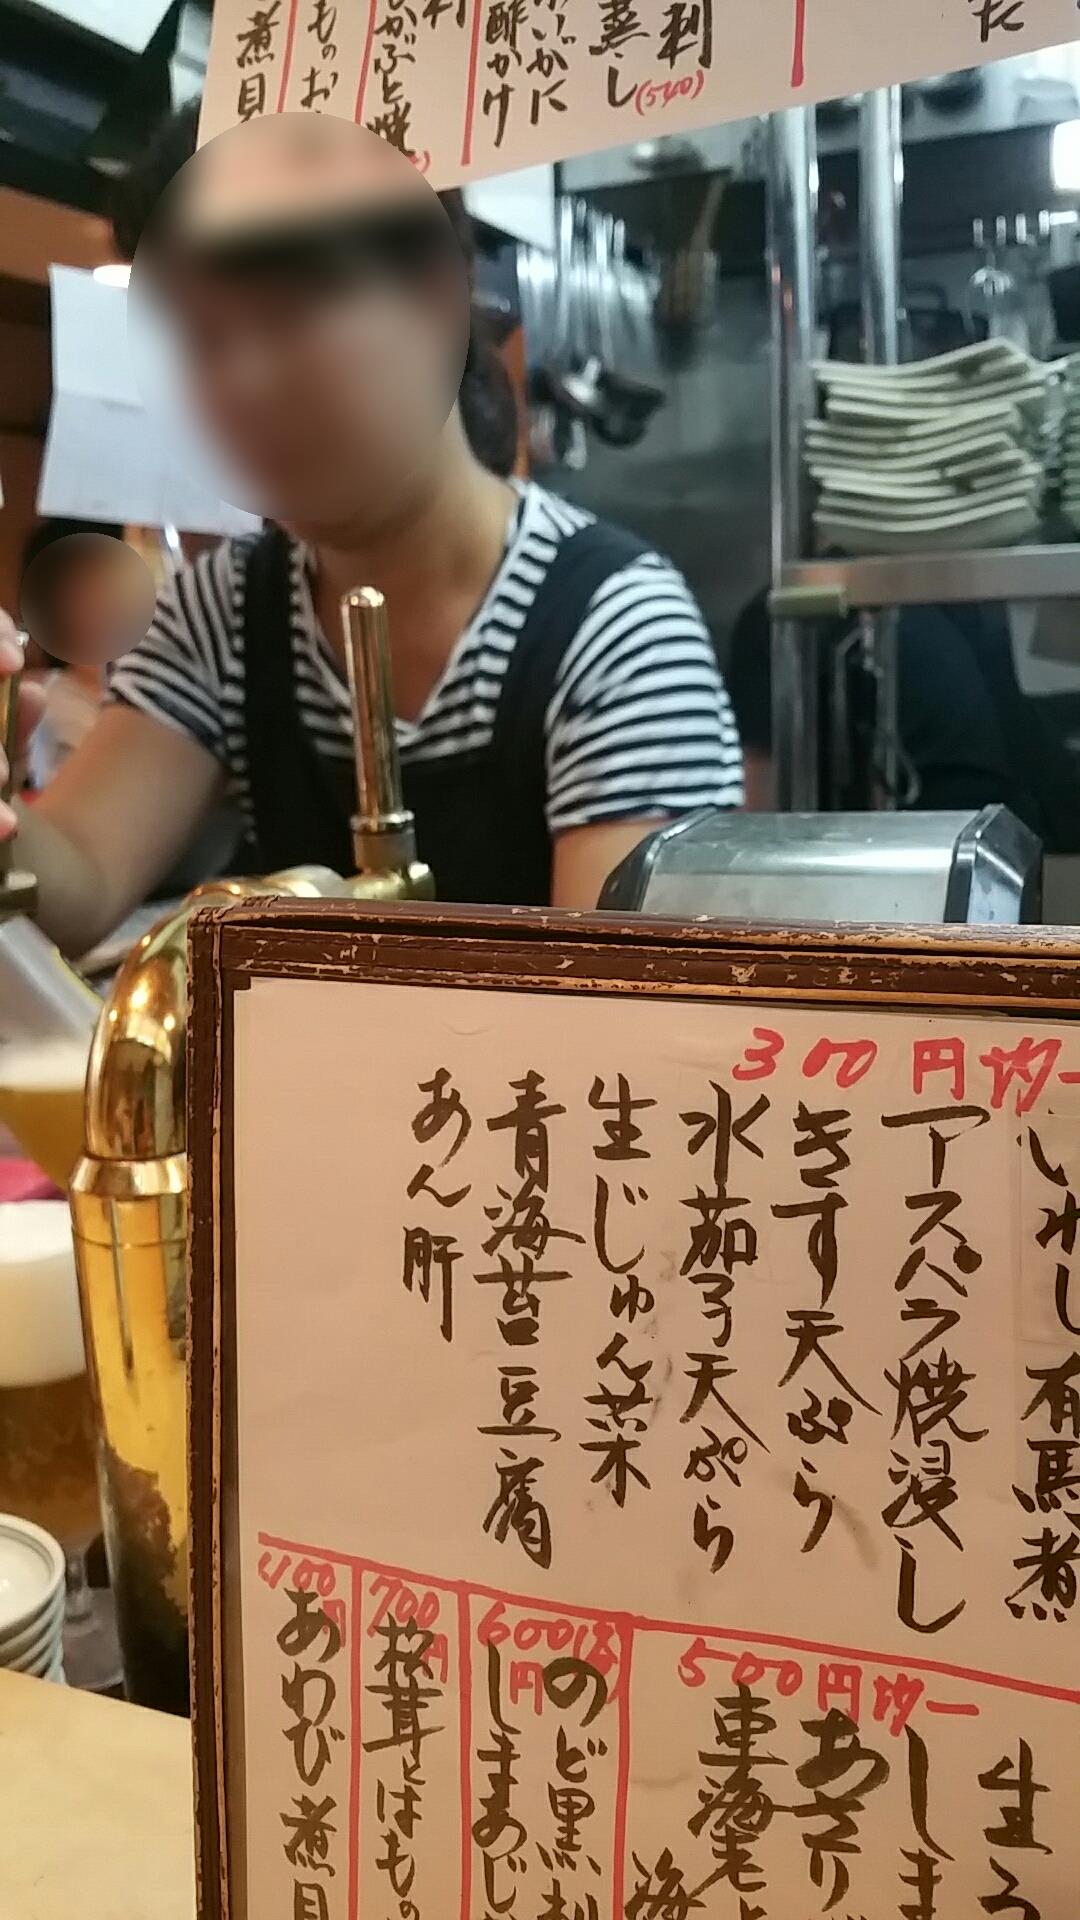 た
刺
蒸し(540)
酢かけ
かぶと焼
煮貝
300円均一
いわし有馬煮
アスパラ焼浸し
きす天ぷら
水茄子天ぷら
生じゅん菜
青海苔豆腐
あん肝
500円均一
生う
しま
あさり
車海老と
海
600円
のど黒刺
しまあじ
700円
松茸とはもの
あわび煮貝